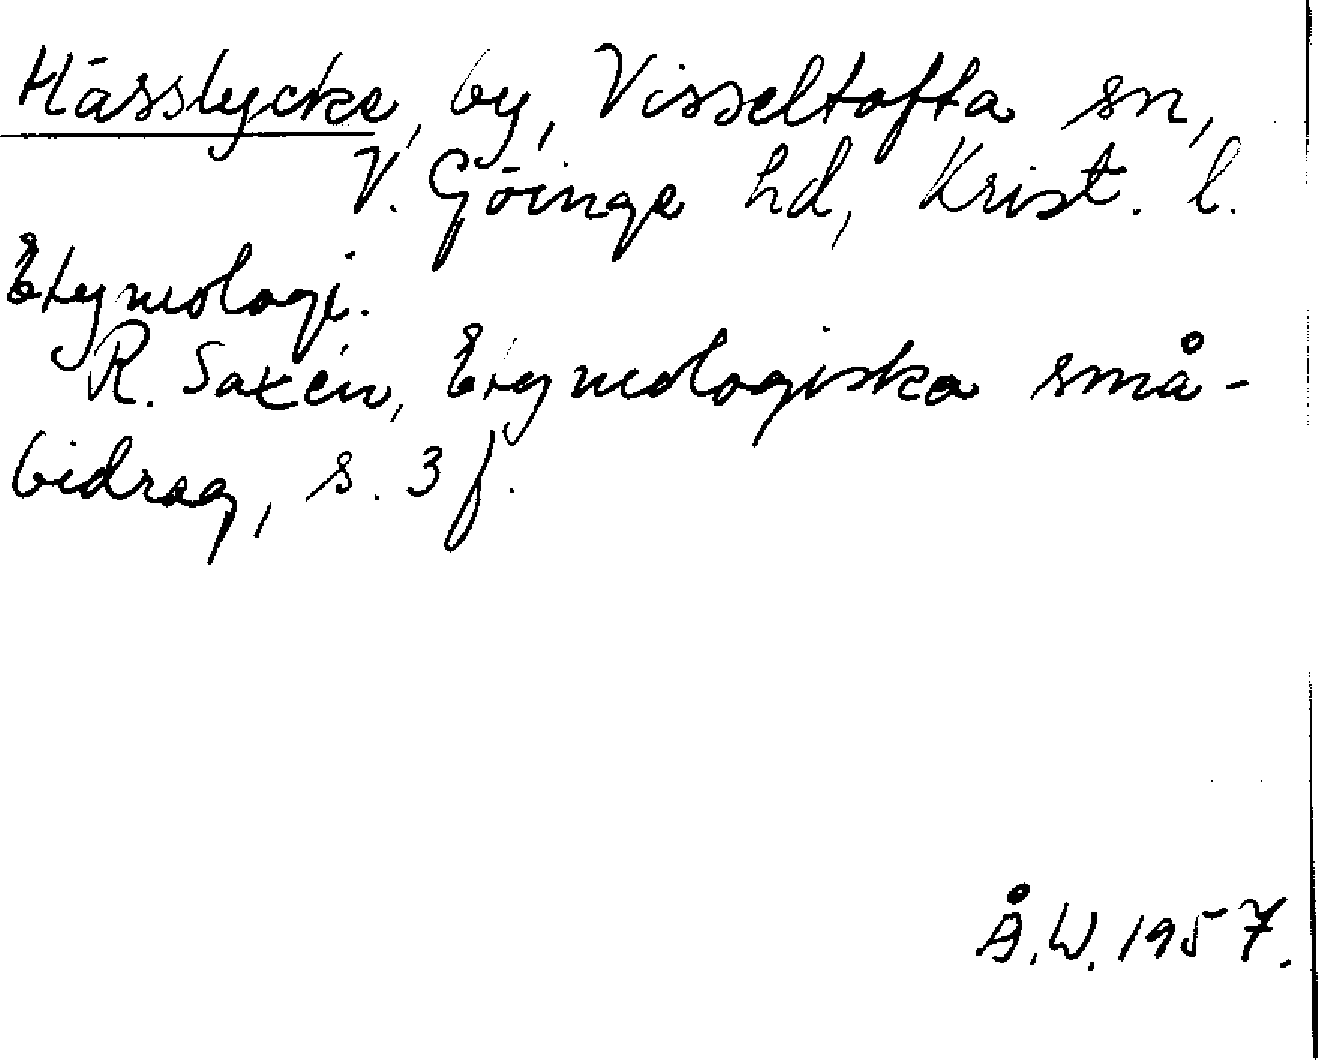 Hässlycke, by, Visseltofta sn,
V. Göinge hd, Krist. l.
Etymologi.
R. Saxén, Etymologiska små-
bidrag, s. 3 f.
Å.W. 1957.